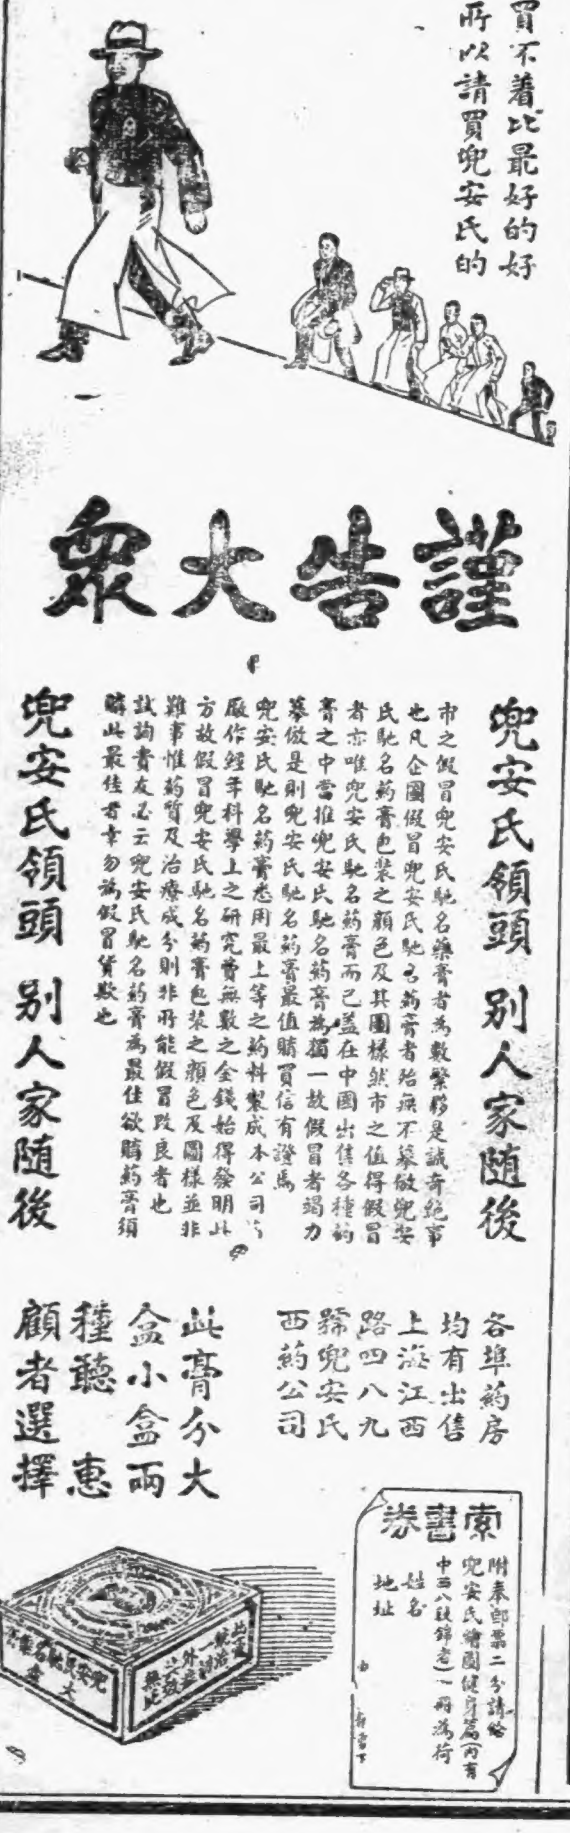 買不着比最好的好
所以請買兜安氏的
謹告大眾
兜安氏領頭 別人家随後
市之假冒兜安氏馳名藥膏者為數繁夥是誠奇絕事
也凡企圖假冒兜安氏馳名葯膏者殆無不摹倣兜安
氏馳名葯膏包裝之顏色及其圖樣然市之值得假冒
者亦唯兜安氏馳名葯膏而已蓋在中國出售各種葯
膏之中當推兜安氏馳名葯膏為獨一故假冒者竭力
摹倣是則兜安氏馳名葯膏最值購買信有證焉
兜安氏馳名葯膏悉用最上等之葯料製成本公司
廠作經年科學上之研究費無數之金錢始得發明此
方故假冒兜安氏馳名葯膏包裝之顏色及圖樣並非
難事惟葯質及治療成分則非所能假冒改良者也
試詢貴友必云兜安氏馳名葯膏為最佳欲購葯膏須
購此最佳者幸勿為假冒貨欺也
兜安氏領頭 別人家随後
各埠葯房
均有出售
上海江西
路四八九
號兜安氏
西葯公司
此膏分大
盒小盒兩
種聽 惠
顧者選擇
索書券
附奉郵票二分請給
兜安氏繪圖健身篇(內有
中西八段錦者)一冊為荷
姓名
地址
兜安氏馳名藥膏